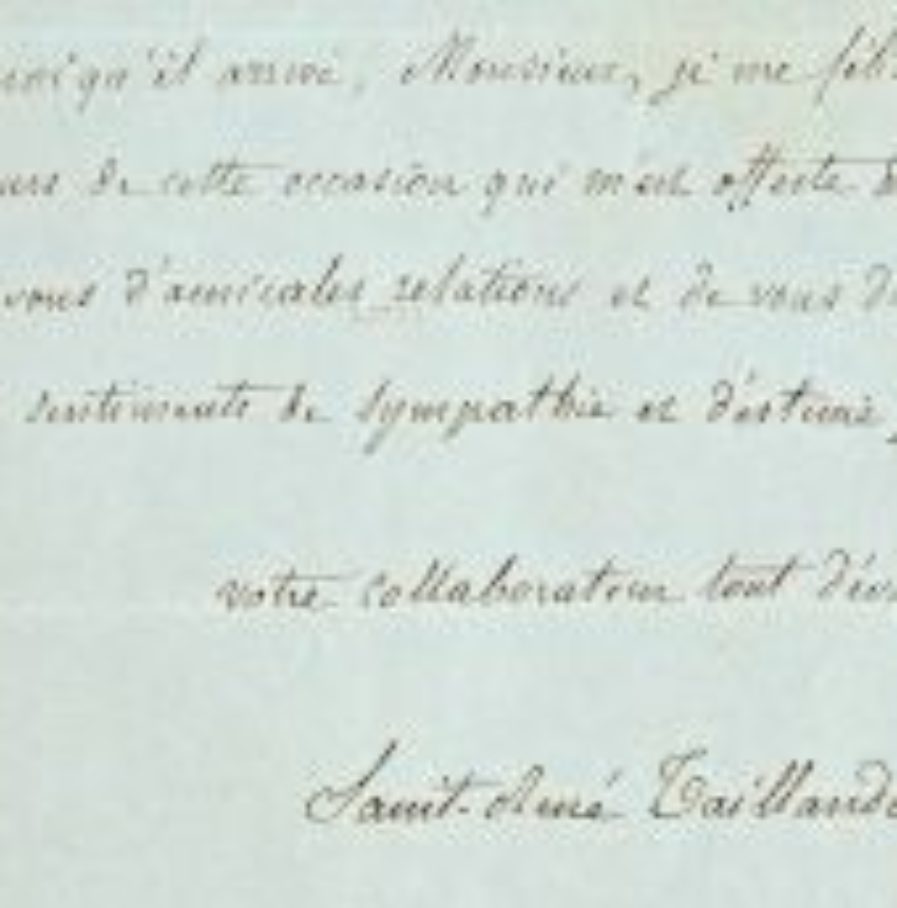 uoiqu'il arrive, Monsieur, je me féli
urs de cette occasion qui m'est offerte d
vous d'amicales relations et de vous d
sentiments de sympathie et d'estime,
votre collaborateur tout dévo
Saint-René Tailland